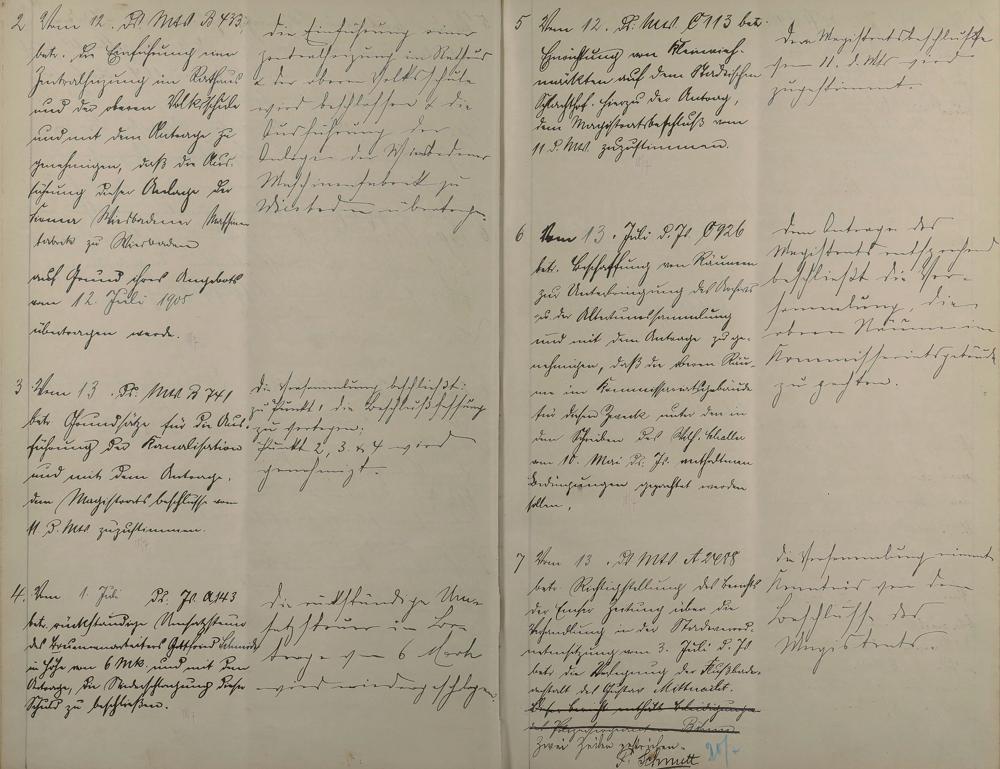 2 Vom 12. ds Mts B 433,
betr. die Einführung von
Zentralheizung im Rathaus
und der oberen Volksschule
und mit dem Antrage zu
genehmigen, daß die Aus-
führung dieser Anlage der
Firma Wiesbadener Maschinen
fabrik zu Wiesbaden
auf Grund ihres Angebots
vom 12 Juli 1905
übertragen werde.
die Einführung einer
Zentralheizung im Rathaus
& der oberen Volksschule
wird beschlossen & die
Ausführung der
Anlage der Wiesbadener
Maschinenfabrik zu
Wiesbaden übertragen.
3 Vom 13. ds. Mts B 741
betr. Grundsätze für die Aus-
führung der Kanalisation
und mit dem Antrage,
dem Magistratsbeschlusse vom
11 d. Mts zuzustimmen.
die Versammlung beschließt:
zu Punkt 1, die Beschlußfassung
zu vertagen;
Punkt 2, 3 & 4 wird
genehmigt.
4. Vom 1. Juli ds. Js A 143
betr. rückständige Umsatzsteuer
des Gottfried
in Höhe von 6 Mk. und mit dem
Antrage, die Niederschlagung dieser
Schuld zu beschließen.
die rückständige Um-
satzsteuer im Be-
trage von 6 Mark
wird niedergeschlagen.
5 Vom 12. ds. Mts. C 113 betr.
Einrichtung von Kleinvieh-
märkten auf dem Städtischen
Schlachthof. hierzu der Antrag,
dem Magistratsbeschluß vom
11 d. Mts zuzustimmen.
Dem Magistratsbeschlusse
vom 11. d. Mts wird
zugestimmt.
6 Vom 13. Juli d. Js C 926
betr. Beschaffung von Räumen
zur Unterbringung des Archivs
u. der Altertumssammlung
und mit dem Antrage zu ge-
nehmigen, daß die oberen Räu-
me im Kommissariatsgebäude
für diesen Zweck unter den in
dem Schreiben des
vom 10. Mai ds. Js. enthaltenen
Bedingungen gepachtet werden
sollen.
Dem Antrage des
Magistrats entsprechend
beschließt die Ver-
sammlung, die
oberen Räume im
Kommissariatsgebäude
zu pachten.
7 Vom 13. ds Mts A 2488
betr. Richtigstellung des Berichts
der Emser Zeitung über die
Verhandlung in der Stadtverord-
netensitzung vom 3. Juli d. Js
betr. die Verlegung der Flußbade-
anstalt des Gustav Mittnacht.
Dieser Bericht enthält
Zwei Zeilen gestrichen.
Schmitt
die Versammlung nimmt
Kenntnis von dem
Beschlusse des
Magistrats.